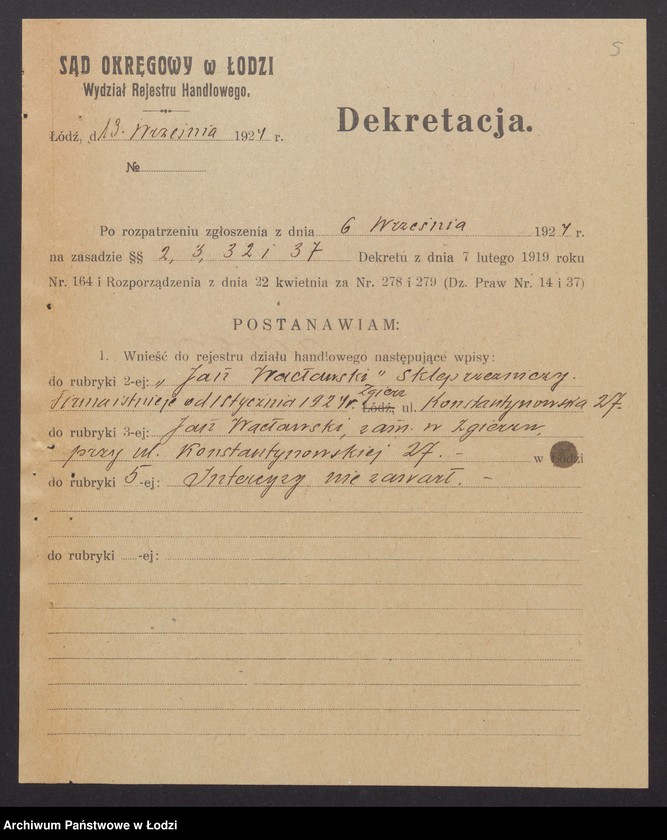 5
SĄD OKRĘGOWY w ŁODZI
Wydział Rejestru Handlowego.
Łódź, d. 13. Września 1924 r.
Dekretacja.
№
Po rozpatrzeniu zgłoszenia z dnia 6 Września 1924 r.
na zasadzie §§ 2, 3, 32 i 37 Dekretu z dnia 7 lutego 1919 roku
Nr. 164 i Rozporządzenia z dnia 22 kwietnia za Nr. 278 i 279 (Dz. Praw Nr. 14 i 37)
POSTANAWIAM:
1. Wnieść do rejestru działu handlowego następujące wpisy:
do rubryki 2-ej: „Jan Wacławski" sklep rzeźniczy.
Zgierz
Firma istnieje od 1 stycznia 1924 r. Łódź, ul. Konstantynowska 27.
do rubryki 3-ej: Jan Wacławski, zam. w Zgierzu,
przy ul. Konstantynowskiej 27. – w Łodzi
do rubryki 5-ej: Intercyzy nie zawarł. –
do rubryki -ej:
Archiwum Państwowe w Łodzi